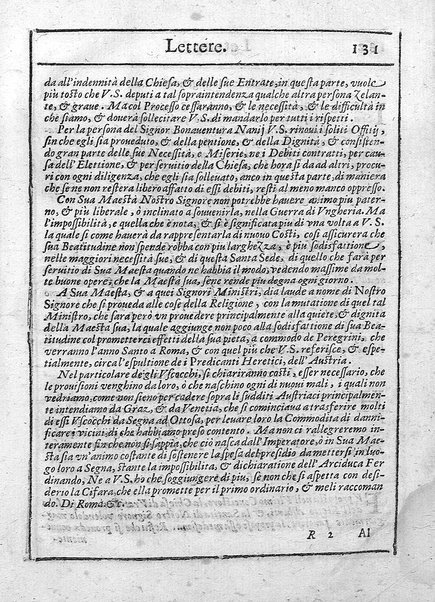 Lettere. 131
da all'indennità della Chiesa, & delle sue Entrate, in questa parte, vuole
più tosto che V.S. deputi a tal sopraintendenza qualche altra persona zelan-
te, & graue. Ma col Processo cessaranno, & le necessità, & le difficultà in
che siamo, & douerà sollecitare V.S. di mandarlo per tutti i rispetti.
Per la persona del Signor Bonauentura Nanij V.S. rinoui i soliti Offitij,
sin che egli sia proueduto, & della pensione, & della Dignità, & consisten-
do gran parte delle sue Necessità, e Miserie, ne i Debiti contratti, per cau-
sa dell'Elettione, & per seruitio della Chiesa, chè hora si da ad altri, procu-
ri con ogni diligenza, che egli sia solleuato, anco in questa parte, di maniera
che se ne non restera libero affatto di essi debiti, resti al meno manco oppresso.
Con Sua Maestà Nostro Signore non potrebbe hauere animo piu pater-
no, & più liberale, ò inclinato a souuenirla, nella Guerra di Vngheria. Ma
l'impossibilità, e quella che è nota, & si è significata piu di vna volta a V.S.
la quale si come hauerà da rappresentarla di nuouo Costì, cosi assicurerà che
sua Beatitudine non spende robba con piu larghezza, è piu sodisfatione,
nelle maggiori necessità sue, & di questa Santa Sede, di quello che farà per
seruitio di Sua Maestà quando ne habbia il modo, vedendo massime da mol-
te buone opere, che la Maestà sua, sene rende piu degna ogni giorno.
A Sua Maestà, & a quei Signori Ministri, dia laude a nome di Nostro
Signore che si proueda alle cose della Religione, con la mutatione di quel tal
Ministro, che sarà però vn prouedere principalmente alla quiete, & dignità
della Maestà sua, la quale aggiunge non poco alla sodisfatione di sua Bea-
titudine col prometterci effetti della sua pieta, a commodo de Peregrini, che
verranno l'anno Santo a Roma, & con quel più che V.S. referisce, & spe-
tialmente, circa l'espulsione de i Predicanti Heretici, dell'Austria.
Nel particolare degli Vscocchi, si chiariranno costì, esser necessario, che
le prouisioni venghino da loro, ò che naschino ogni dì nuoui mali, i quali non
vediramo, come non sieno per cadere sopra li sudditi Austriaci principalmen-
te intendiamo da Graz, & da Venetia, che si cominciaua a trasferire molti
di essi Vscocchi da Segna ad Ottosa, per leuare loro la Commodita di dann-
ficare i vicini, di che habbiamo preso contento. Ma non ci rallegreremo in-
teramente finche non si sappia, che ciò nasca dall'Imperatore, ò in Sua Mae-
stà sia vn'animo costante di sostenere la spesa del presidio da mettersi in luo-
go loro a Segna, stante la impossibilità, & dichiaratione dell'Arciduca Fer
dinando, Ne a V.S. ho che soggiungere di piu, se non che si aspetta con desi-
derio la Cifara che ella promette per il primo ordinario, & me li raccoman-
do. Di Roma, &c.
R 2 Al